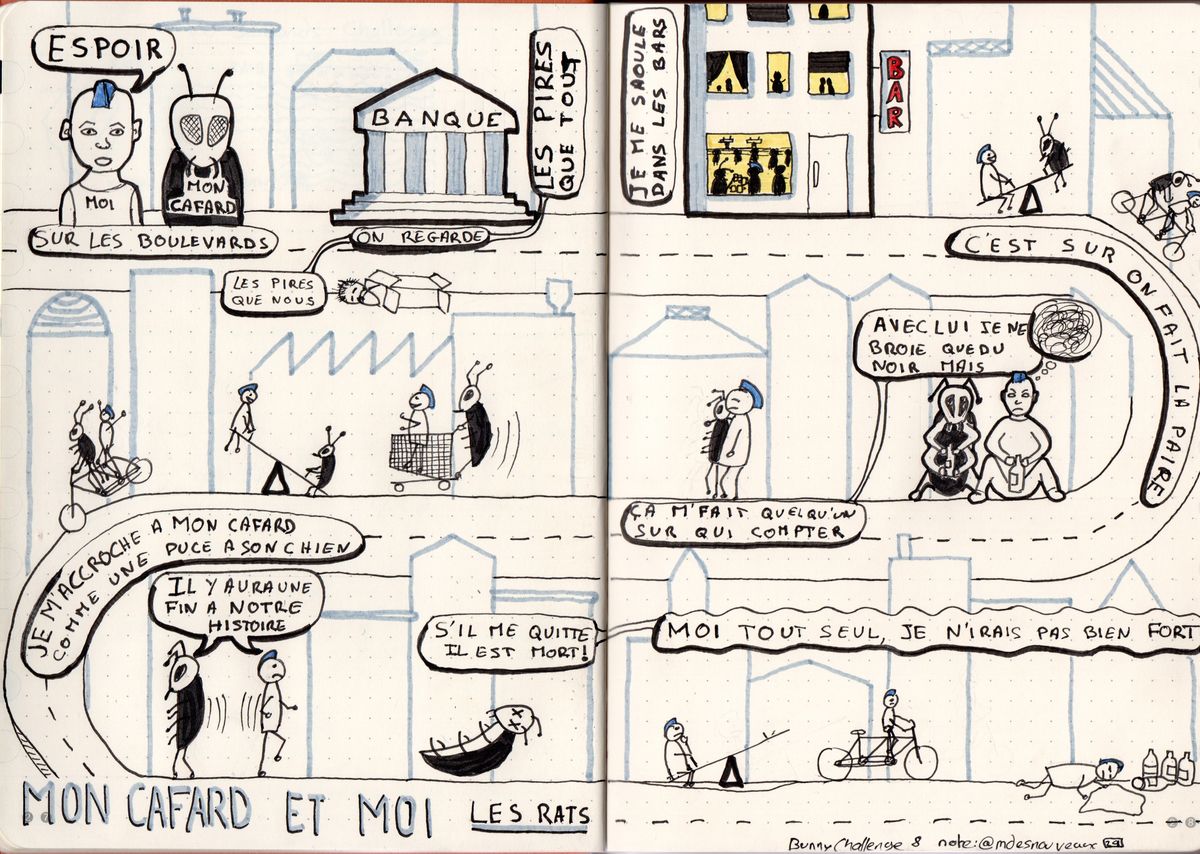 ESPOIR
MOI
MON
CAFARD
SUR LES BOULEVARDS
BANQUE
ON REGARDE
LES PIRES
QUE TOUT
LES PIRES
QUE NOUS
JE ME SAOULE
DANS LES BARS
BAR
C'EST SUR ON FAIT LA PAIRE
AVEC LUI JE NE
BROIE QUE DU
NOIR MAIS
ÇA M'FAIT QUELQU'UN
SUR QUI COMPTER
JE M'ACCROCHE A MON CAFARD
COMME UNE PUCE A SON CHIEN
IL Y AURA UNE
FIN A NOTRE
HISTOIRE
S'IL ME QUITTE
IL EST MORT!
MOI TOUT SEUL, JE N'IRAIS PAS BIEN FORT
MON CAFARD ET MOI
LES RATS
Bunny Challenge 8 note:@mdesnouveaux